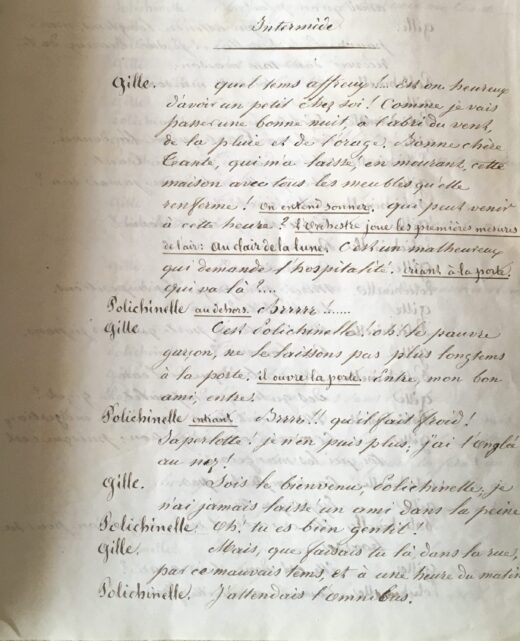 Intermède
Gille. Quel tems affreux!... est-on heureux
d'avoir un petit chez soi! Comme je vais
passer une bonne nuit, à l'abri du vent,
de la pluie et de l'orage. Bonne chère
Tante, qui m'a laissé, en mourant, cette
maison avec tous les meubles qu'elle
renferme! On entend sonner. qui peut venir
à cette heure? L'Orchestre joue les premières mesures
de l'air: Au clair de la lune. C'est un malheureux
qui demande l'hospitalité. criant à la porte.
qui va là?....
Polichinelle au dehors. Brrrrr!......
Gille C'est Polichinelle! oh! le pauvre
garçon, ne le laissons pas plus longtems
à la porte. il ouvre la porte. Entre, mon bon
ami, entre.
Polichinelle entrant. Brrrr!! qu'il fait froid!
Saperlotte! je n'en puis plus, j'ai l'Onglé
au nez!
Gille. Sois le bienvenu, Polichinelle, je
n'ai jamais laissé un ami dans la peine
Polichinelle. Oh! tu es bien gentil.
Gille. Mais, que faisais tu là, dans la rue,
par ce mauvais tems, et à une heure du matin
Polichinelle. J'attendais l'Omnibus.